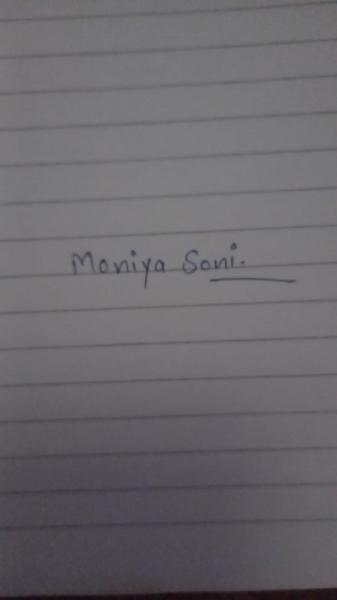 Moniya Soni.